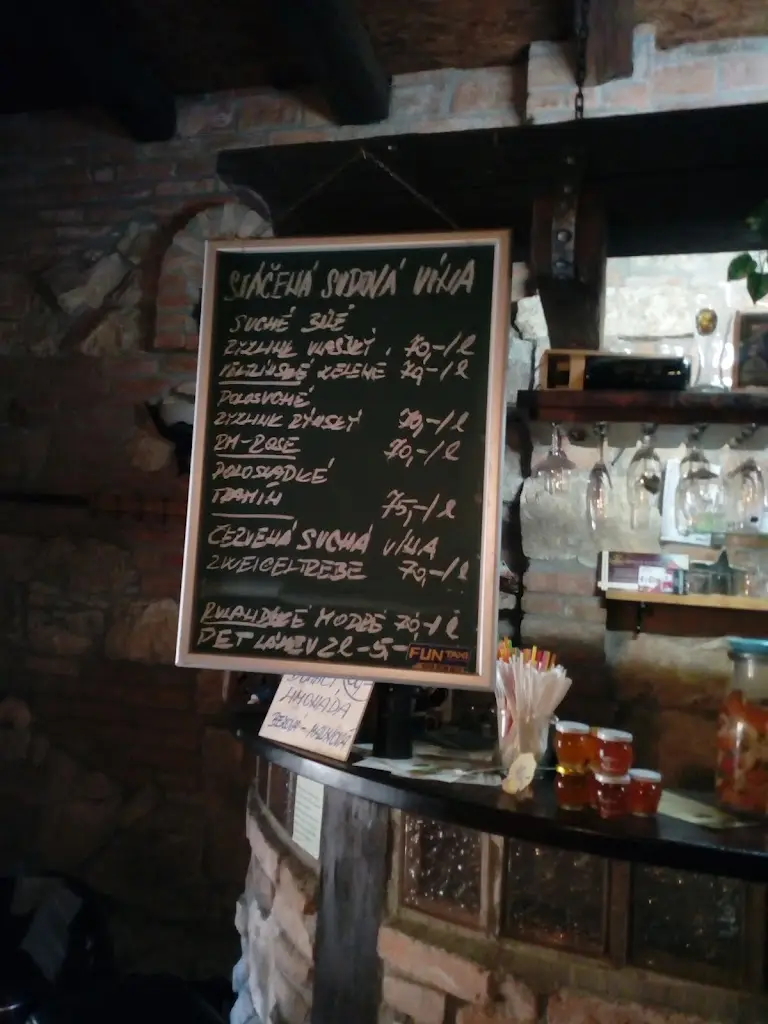 STÁČENÁ SUDOVÁ VÍNA
SUCHÉ BÍLÉ
RYZLINK VLAŠSKÝ 70,-/l
VELTLÍNSKÉ ZELENÉ 70,-/l
POLOSUCHÉ
RYZLINK RÝNSKÝ 70,-/l
RM-ROSE 70,-/l
POLOSLADKÉ
TRAMÍN 75,-/l
ČERVENÁ SUCHÁ VÍNA
ZWEIGELTREBE 70,-/l
MODRÉ 70,-/l
PET LÁHEV 2l-5,-
FUN TAXI
LIMONÁDA